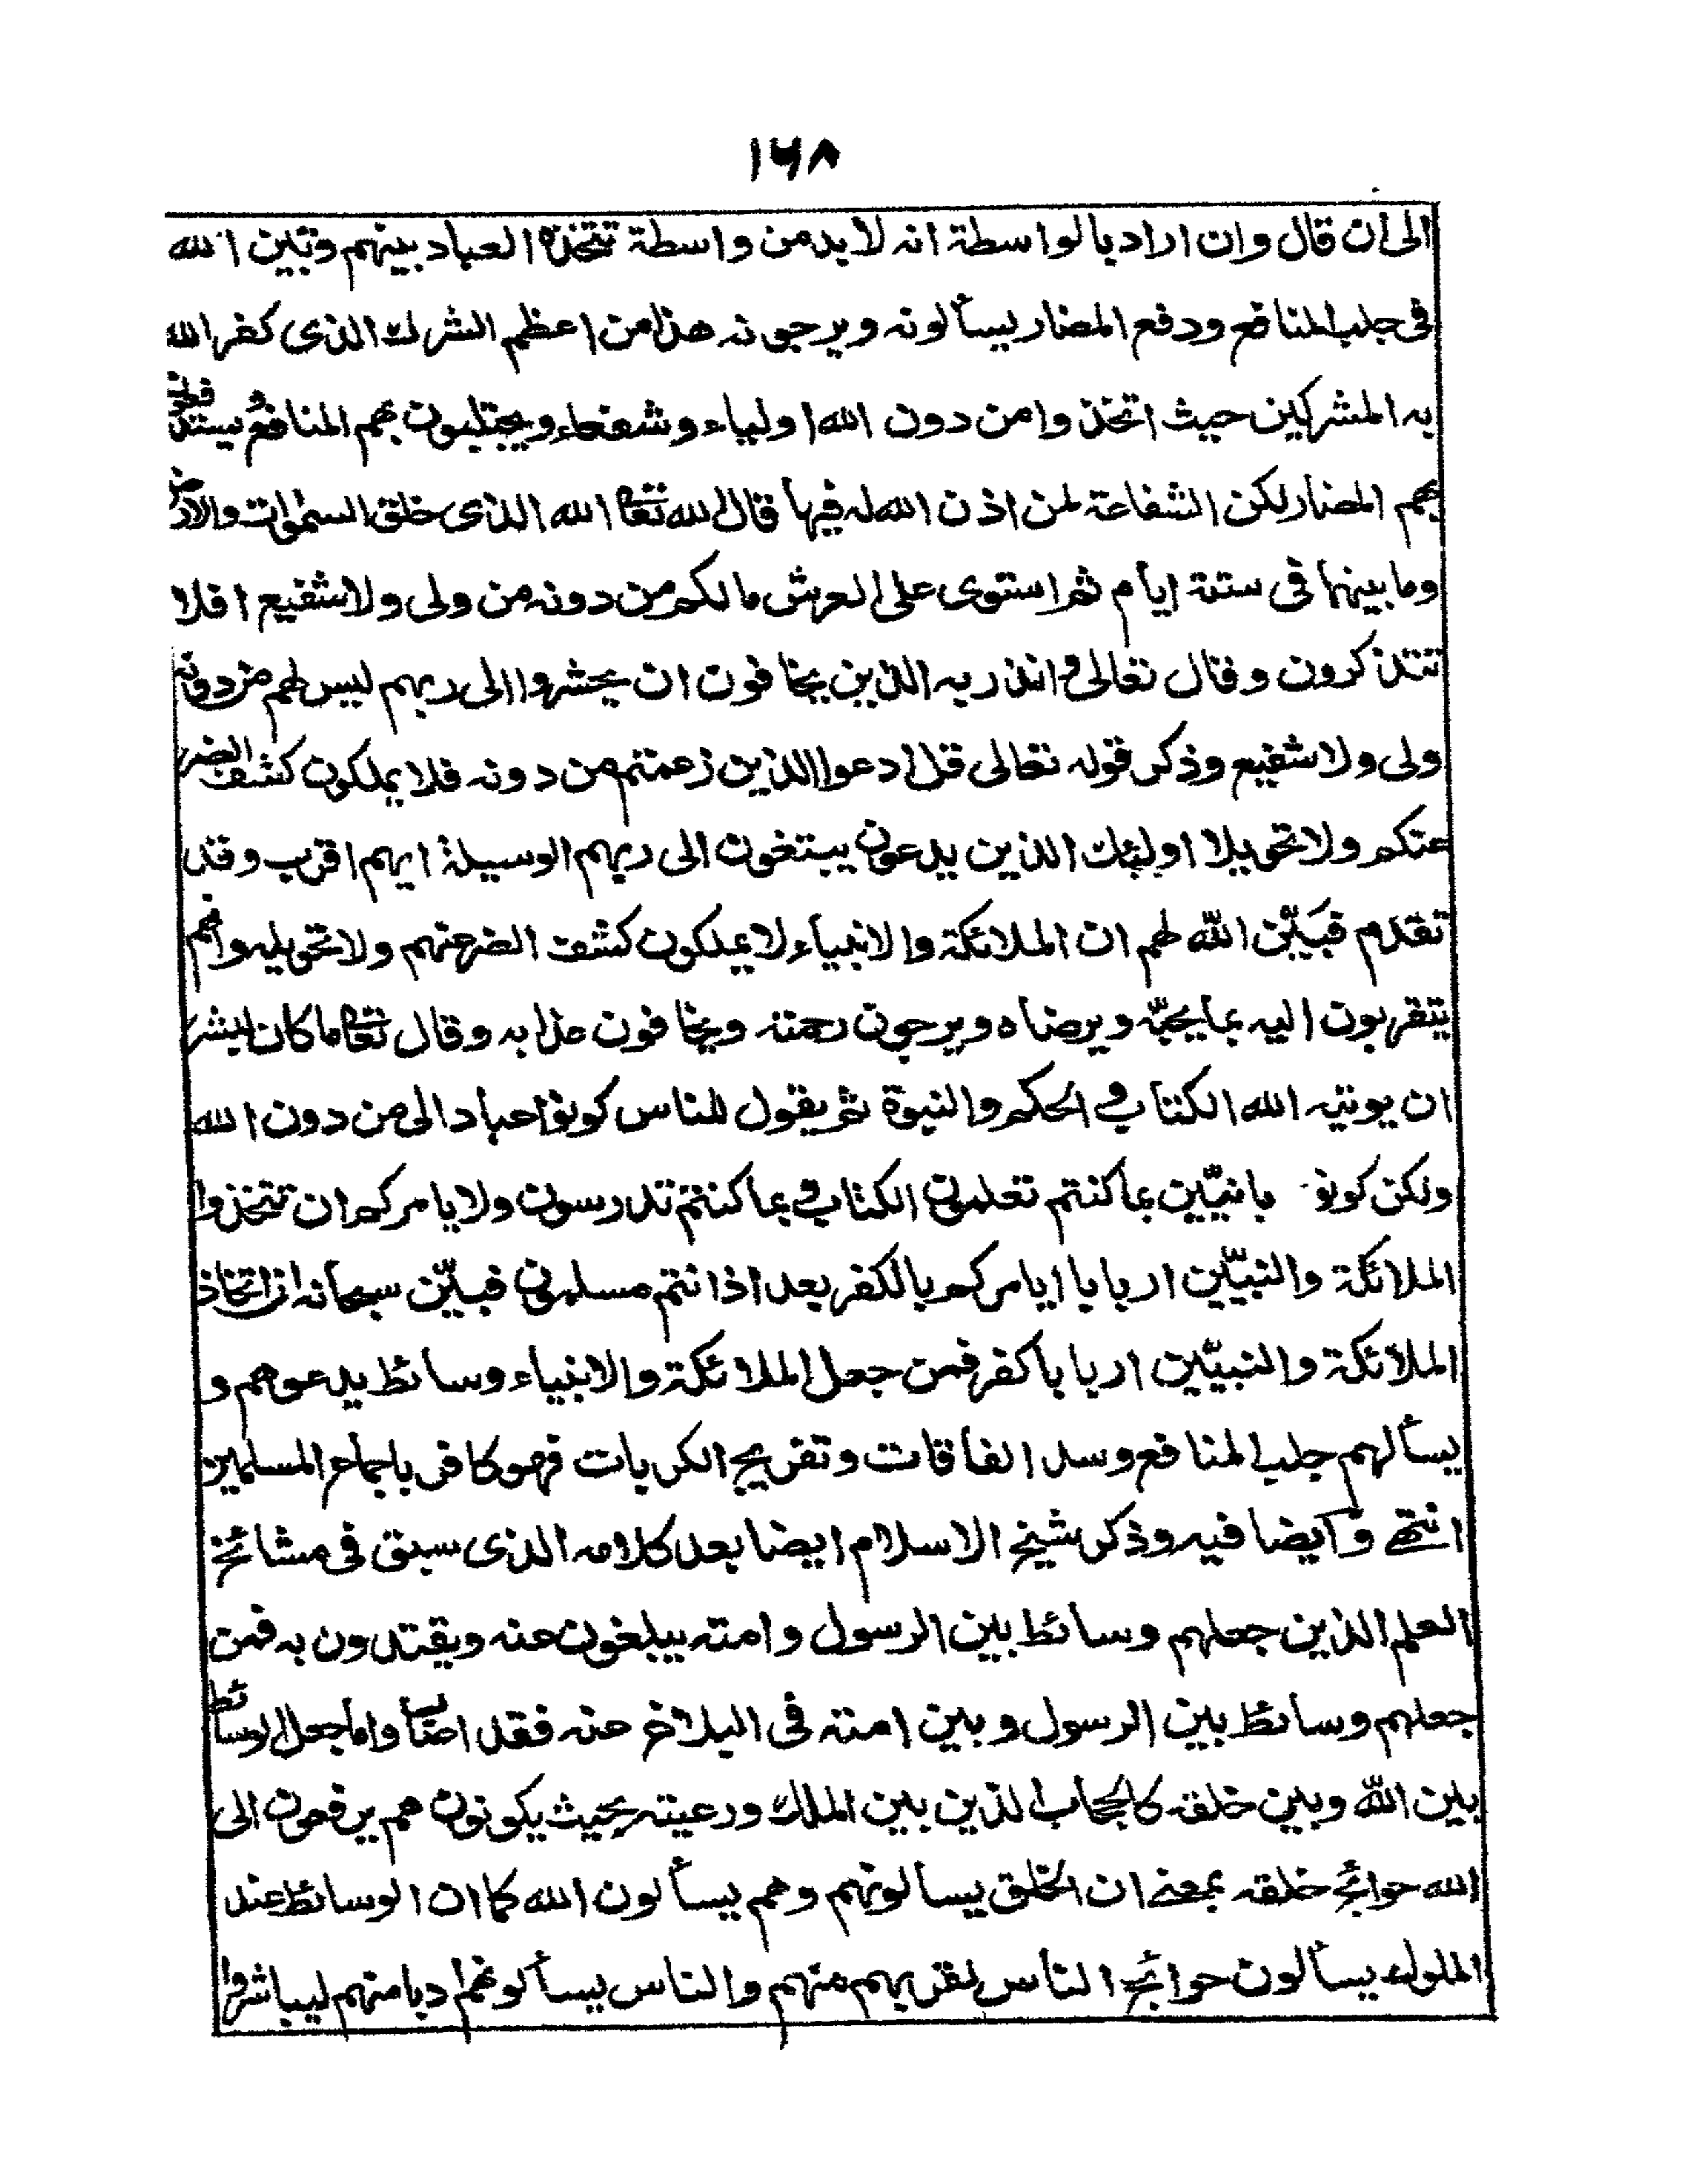 ١٦٨
الى ان قال وان اراد بالواسطة انه لا بد من واسطة تتخذه العباد بينهم وبين الله
فى جلب المنافع ودفع المضار يسألونه ويرجونه هذا من اعظم الشرك الذى كفر الله
به المشركين حيث اتخذوا من دون الله اولياء وشفعاء ويجتلبون بهم المنافع ويستدفعون
بهم المضار لكن الشفاعة لمن اذن الله له فيها قال الله تعا الله الذى خلق السموات والارض
وما بينهما فى ستة ايام ثم استوى على العرش مالكم من دونه من ولى ولا شفيع افلا
تتذكرون وقال تعالى وانذر به الذين يخافون ان يحشروا الى ربهم ليس لهم من دونه
ولى ولا شفيع وذكر قوله تعالى قل ادعوا الذين زعمتم من دونه فلا يملكون كشف الضر
عنكم ولا تحويلا اولئك الذين يدعون يبتغون الى ربهم الوسيلة ايهم اقرب وقد
تقدم فبَيّن الله لهم ان الملائكة والانبياء لا يملكون كشف الضر عنهم ولا تحويله وانهم
يتقربون اليه بما يحبّه ويرضاه ويرجون رحمته ويخافون عذابه وقال تعا ما كان لبشر
ان يوتيه الله الكتاب و الحكم والنبوة ثم يقول للناس كونوا عبادا لى من دون الله
ولكن كونو بانيّين بما كنتم تعلمون الكتاب و بما كنتم تدرسون ولا يامركم ان تتخذوا
الملائكة والنبيّين اربابا ايامركم بالكفر بعد اذ انتم مسلمون فبيّن سبحانه ان اتخاذ
الملائكة والنبيّين اربابا كفر فمن جعل الملائكة والانبياء وسائط يدعوهم و
يسألهم جلب المنافع وسد الفاقات وتفريج الكربات فهو كافر باجماع المسلمين
انتهى وآيضا فيه وذكر شيخ الاسلام ايضا بعد كلامه الذى سبق فى مشائخ
العلم الذين جعلهم وسائط بين الرسول وامته يبلغون عنه ويقتدون به فمن
جعلهم وسائط بين الرسول وبين امته فى البلاغ عنه فقد اصاب واما جعل الوسائط
بين الله وبين خلقه كالحجاب الذين بين الملك ورعيته بحيث يكونون هم يرفعون الى
الله حوائج خلقه بمعنى ان الخلق يسألونهم وهم يسألون الله كما ان الوسائط عند
الملوك يسألون حوائج الناس لقربهم منهم والناس يسألونهم ادبا منهم ليباشروا